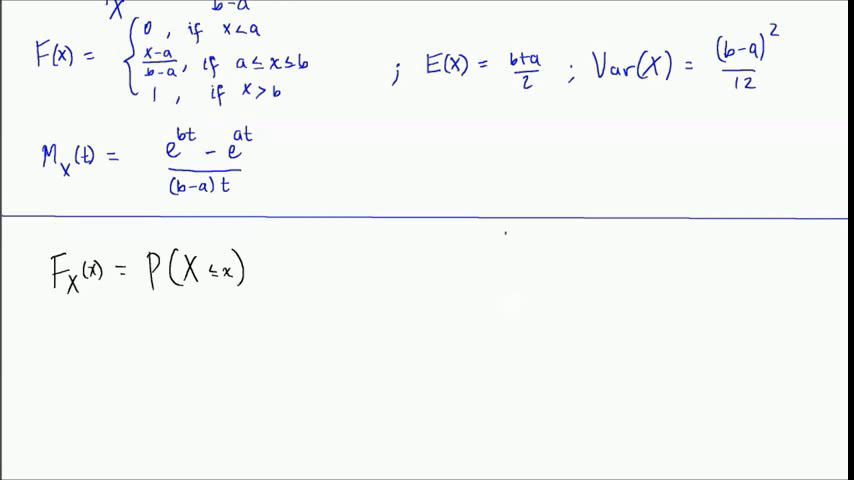 X b-a
F(x) = { 0 , if x<a
x-a/b-a , if a≤x≤b ; E(X) = b+a/2 ; Var(X) = (b-a)²/12
1 , if x>b
M_X(t) = e^bt - e^at / (b-a)t
F_X(x) = P(X≤x)